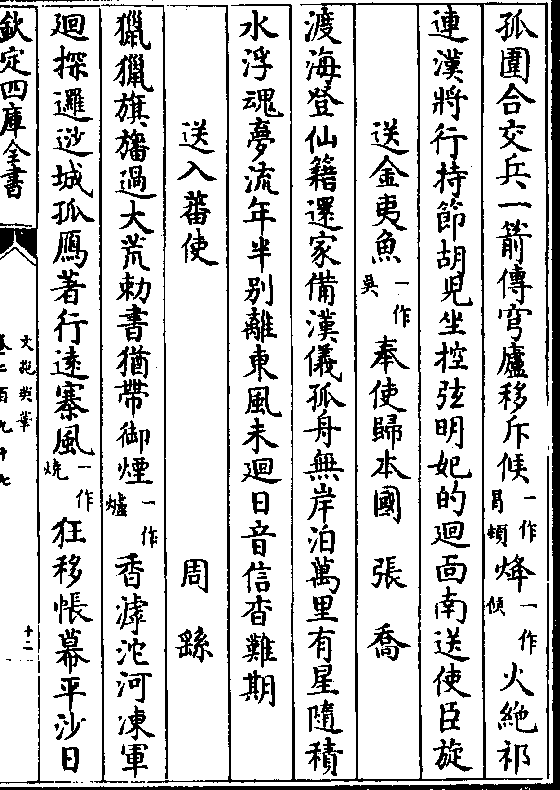 孤圍合交兵一箭傳穹廬移斥候一作冒頓烽一作傾火絶祁
連漢將行持節胡兒坐控弦明妃的迴面南送使臣旋
送金夷魚一作吳奉使歸本國 張喬
渡海登仙籍還家備漢儀孤舟無岸泊萬里有星隨積
水浮魂夢流年半别離東風未迴日音信杳難期
送入蕃使 周繇
獵獵旗旛過大荒勅書猶帶御煙一作爐香滹沱河凍軍
迴探邏逤城孤鴈著行遠寨風一作燒狂移帳幕平沙日
欽定四庫全書
文苑英華
卷二百九十七
十二